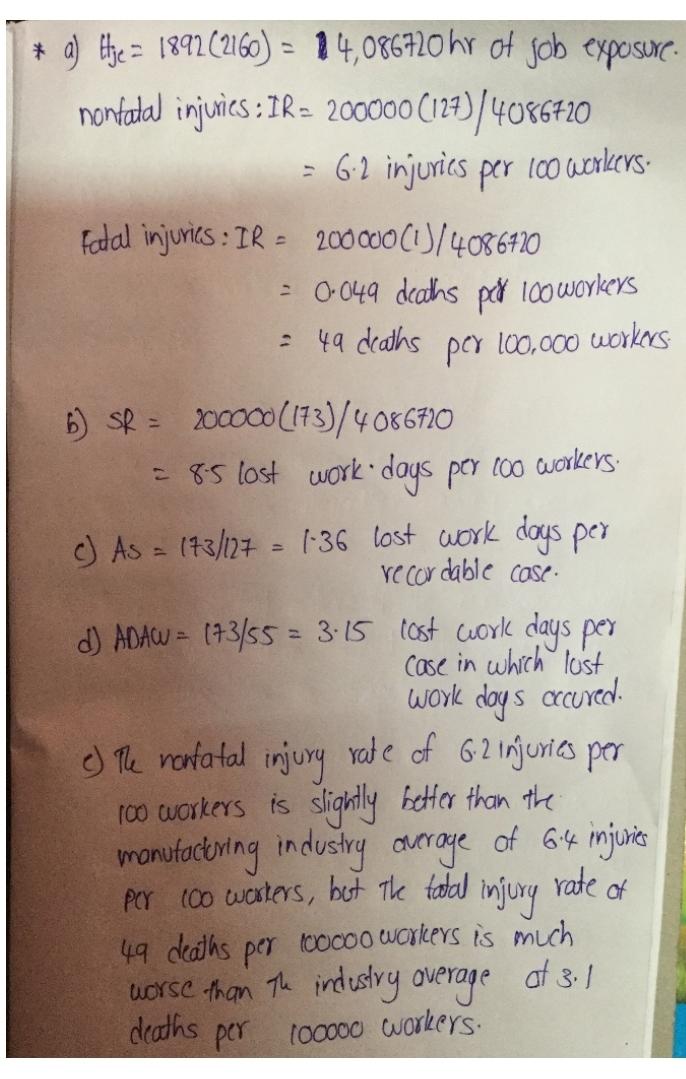 * a) Hje = 1892(2160) = 14,086720 hr of job exposure.
nonfatal injuries : IR = 200000(127)/4086720
= 6.2 injuries per 100 workers.
Fatal injuries : IR = 200000(1)/4086720
= 0.049 deaths per 100 workers
= 49 deaths per 100,000 workers.
b) SR = 200000(173)/4086720
= 8.5 lost work days per 100 workers.
c) AS = 173/127 = 1.36 lost work days per
recordable case.
d) ADAW = 173/55 = 3.15 lost work days per
case in which lost
work days occured.
e) The nonfatal injury rate of 6.2 injuries per
100 workers is slightly better than the
manufactoring industry average of 6.4 injuries
per 100 workers, but the fatal injury rate of
49 deaths per 100000 workers is much
worse than the industry average of 3.1
deaths per 100000 workers.